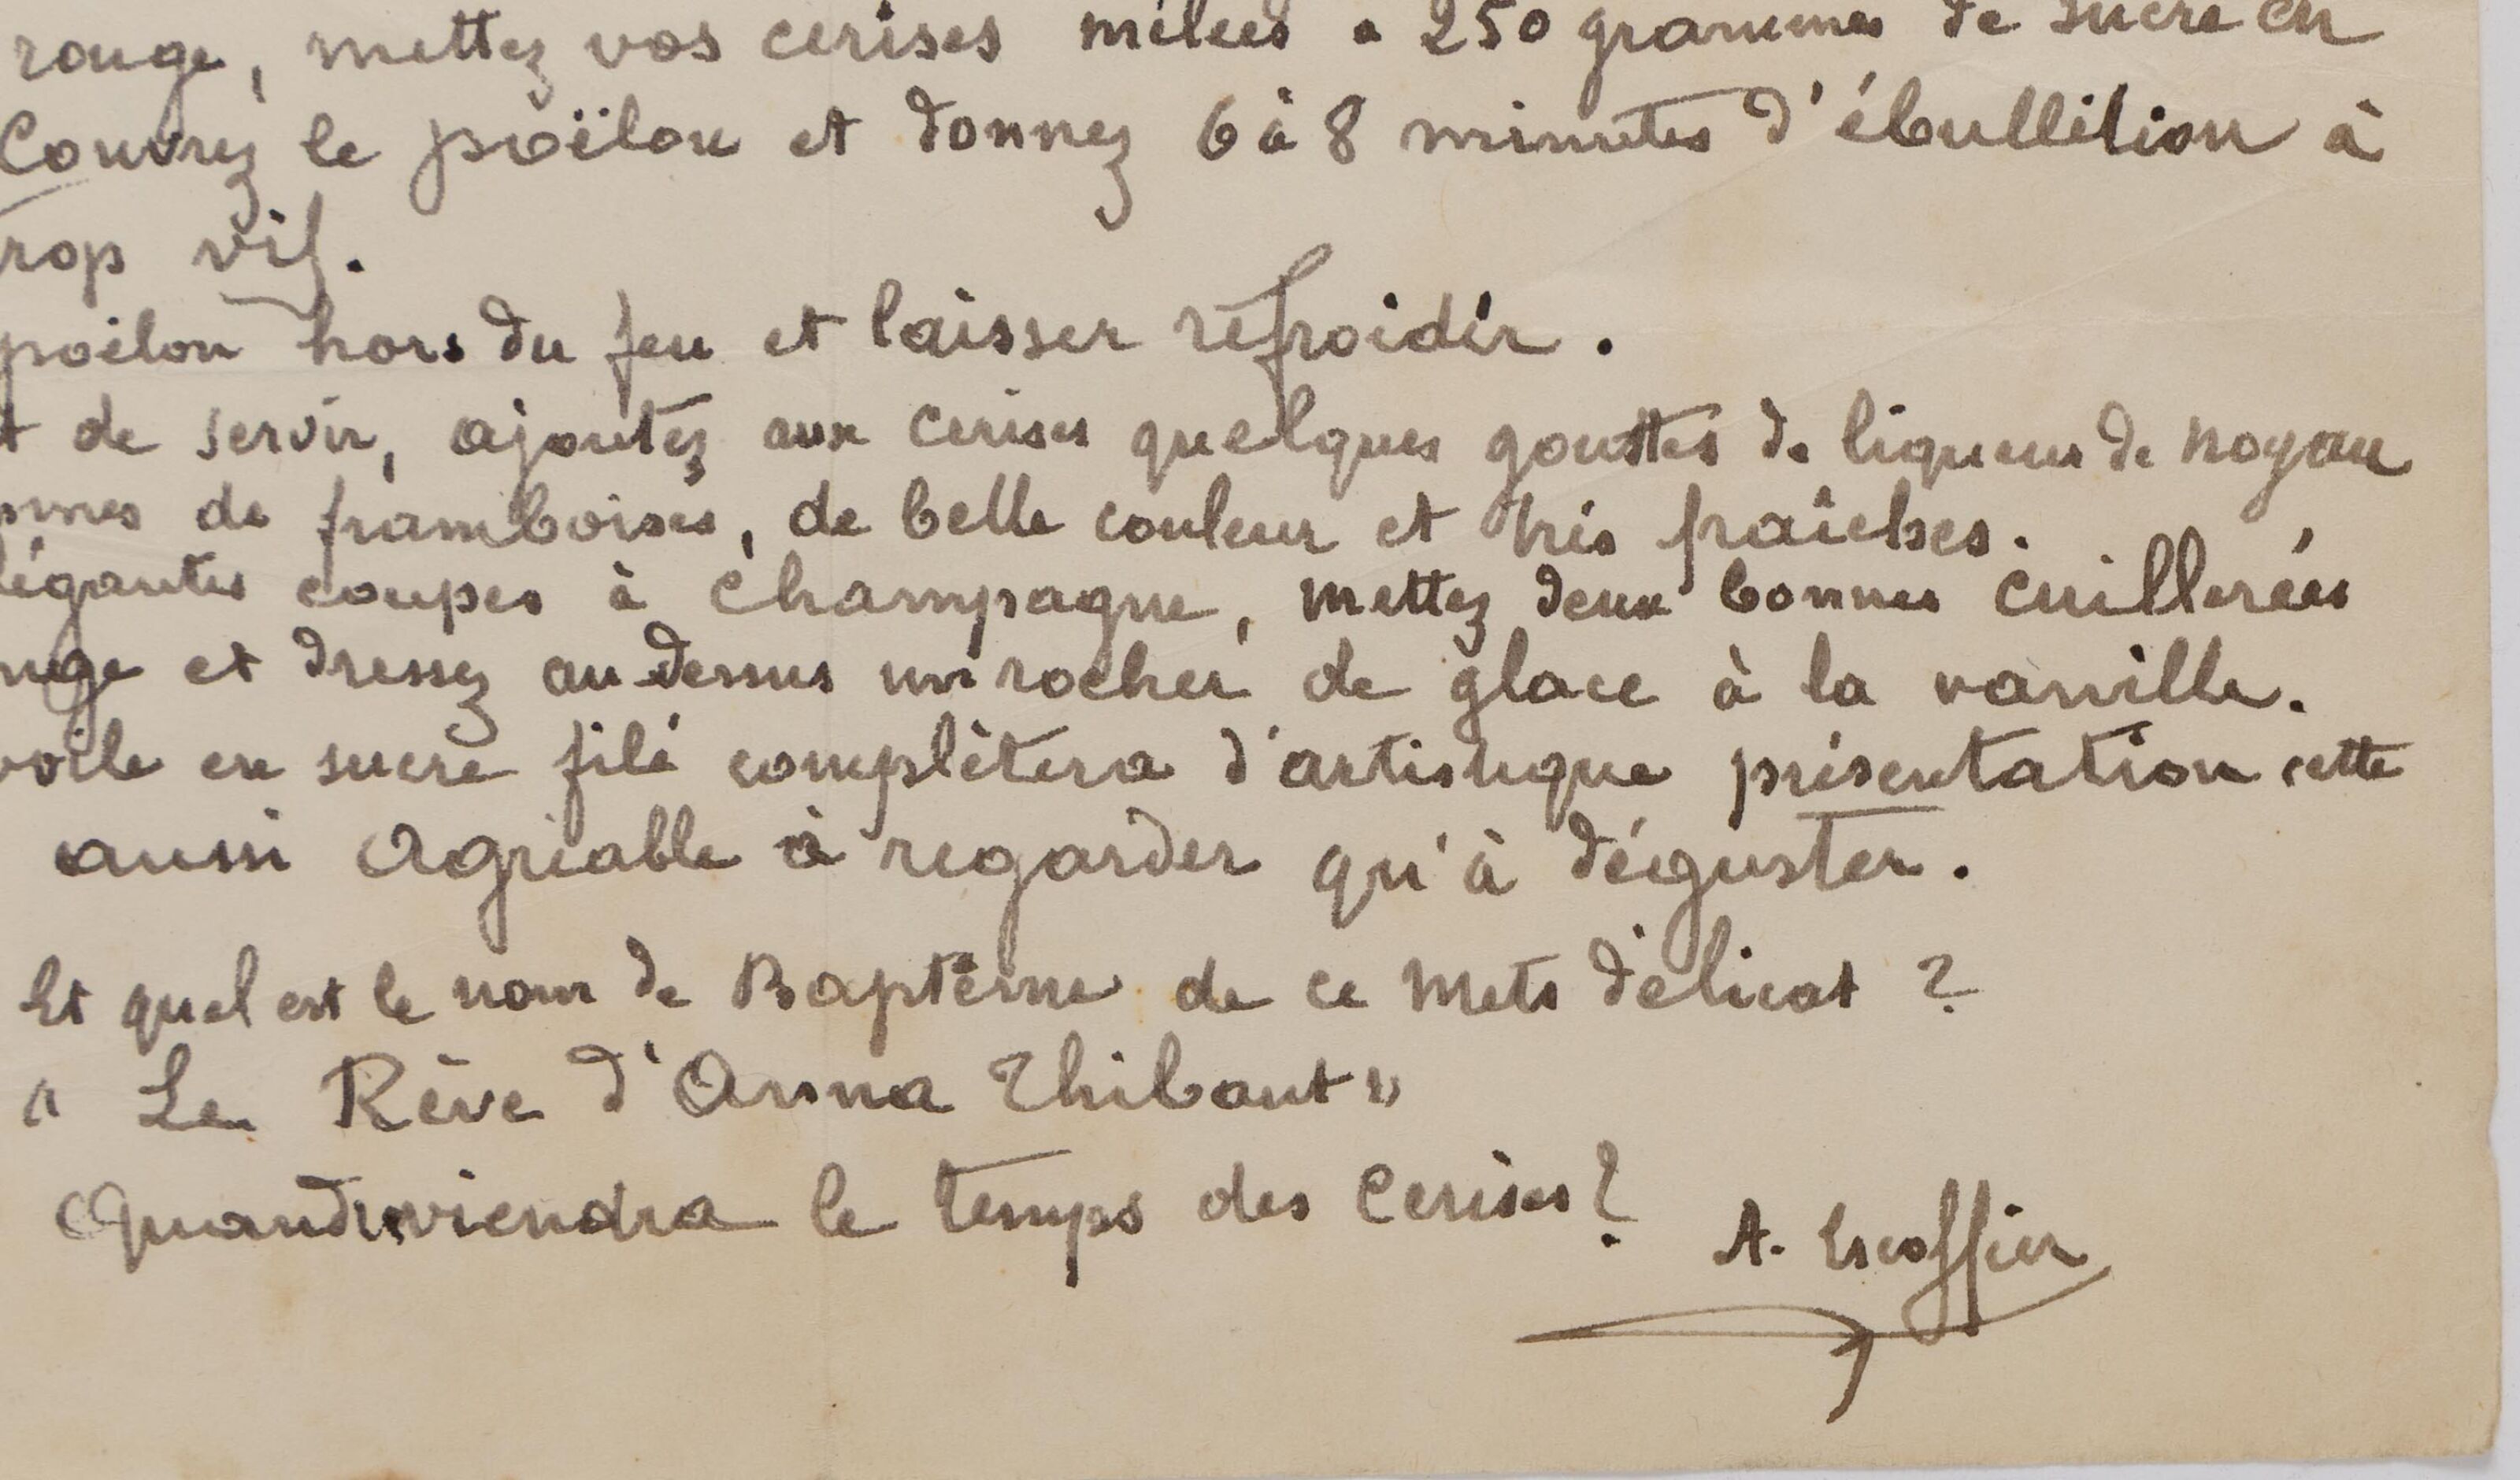 rouge, mettez vos cerises mêlées à 250 grammes de sucre en
Couvrez le poëlon et donnez 6 à 8 minutes d'ébullition à
rop vif.
poëlon hors du feu et laisser refroidir.
t de servir, ajoutez aux cerises quelques gouttes de liqueur de noyau
mmes de framboises, de belle couleur et très fraîches.
légantes coupes à Champagne, mettez deux bonnes cuillerées
nge et dressez au dessus un rocher de glace à la vanille.
voile en sucre filé complètera d'artistique présentation cette
aussi agréable à regarder qu'à déguster.
Et quel est le nom de Baptême de ce mets délicat ?
" Le Rêve d'Anna Thibaut "
Quand reviendra le temps des Cerises ?
A. Escoffier